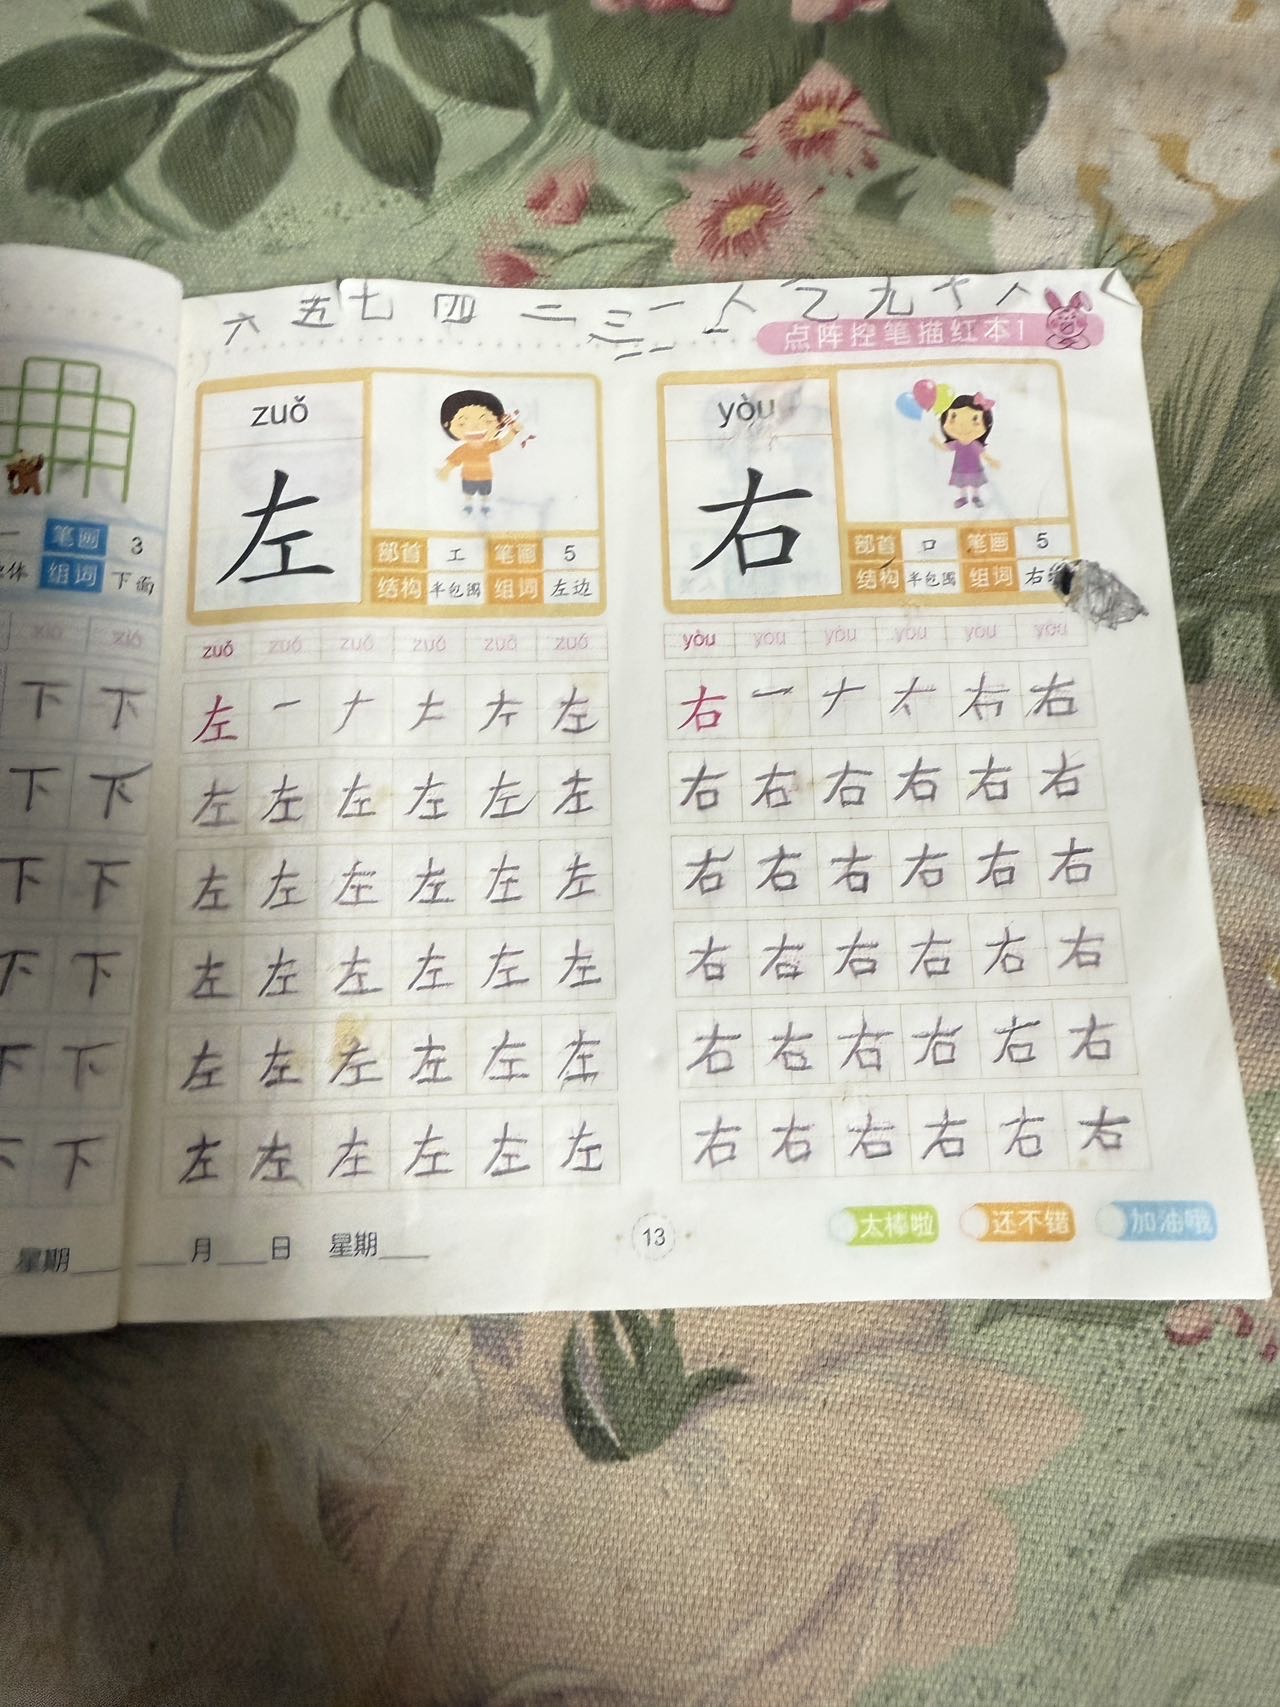 六 五 七 四 二 三 一 人 九 个 人
点阵控笔描红本1
zuǒ
左
部首 工 笔画 5
结构 半包围 组词 左边
yòu
右
部首 口 笔画 5
结构 半包围 组词 右
笔画 3
组词 下面
zuǒ zuǒ zuǒ zuǒ zuǒ zuǒ
左 一 ナ 左
左 左 左 左 左 左
左 左 左 左 左 左
左 左 左 左 左 左
左 左 左 左 左 左
左 左 左 左 左 左
yòu yòu yòu yòu yòu yòu
右 一 ナ 右
右 右 右 右 右 右
右 右 右 右 右 右
右 右 右 右 右 右
右 右 右 右 右 右
右 右 右 右 右 右
xià xià
下 下
下 下
下 下
下 下
下 下
下 下
星期___
___月___日 星期___
13
太棒啦 还不错 加油哦